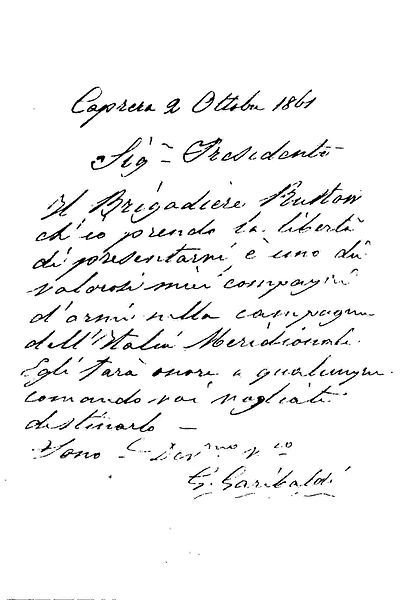 Caprera 2 Ottobre 1861
Sigr Presidente
Il Brigadiere Ruston
ch'io prendo la libertà
di presentarvi è uno dei
valorosi miei compagni
d'armi nella campagna
dell'Italia Meridionale
Egli farà onore a qualunque
comando voi vogliate
destinarlo —
Sono Devmo
G. Garibaldi